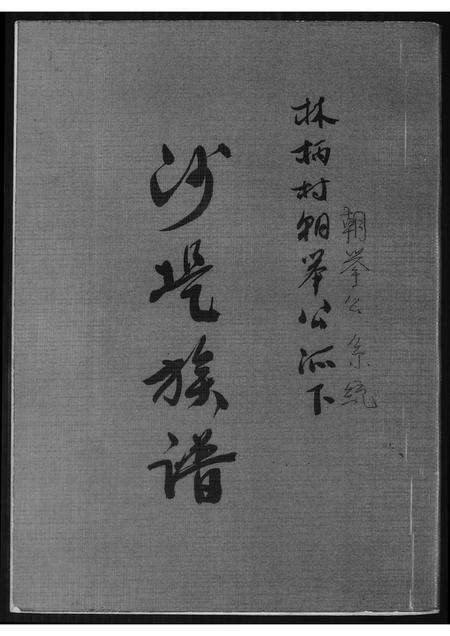 朝举公系统
林柄村朝举公派下
沙堤族谱